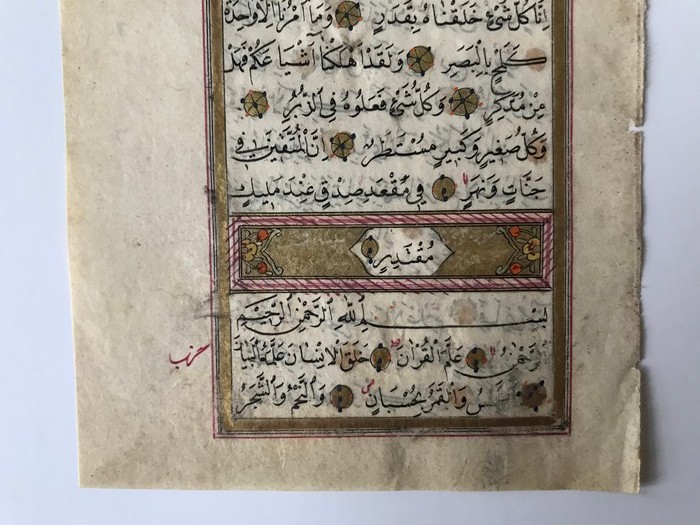 اِنَّا كُلَّ شَيْءٍ خَلَقْنَاهُ بِقَدَرٍ وَمَا اَمْرُنَا اِلَّا وَاحِدَةٌ
كَلَمْحٍ بِالْبَصَرِ وَلَقَدْ اَهْلَكْنَا اَشْيَاعَكُمْ فَهَلْ
مِنْ مُدَّكِرٍ وَكُلُّ شَيْءٍ فَعَلُوهُ فِي الزُّبُرِ
وَكُلُّ صَغِيرٍ وَكَبِيرٍ مُسْتَطَرٌ اِنَّ الْمُتَّقِينَ فِي
جَنَّاتٍ وَنَهَرٍ فِي مَقْعَدِ صِدْقٍ عِنْدَ مَلِيكٍ
مُقْتَدِرٍ
بِسْمِ اللّٰهِ الرَّحْمٰنِ الرَّحِيمِ
حزب
اَلرَّحْمٰنُ عَلَّمَ الْقُرْاٰنَ خَلَقَ الْاِنْسَانَ عَلَّمَهُ الْبَيَانَ
اَلشَّمْسُ وَالْقَمَرُ بِحُسْبَانٍ وَالنَّجْمُ وَالشَّجَرُ